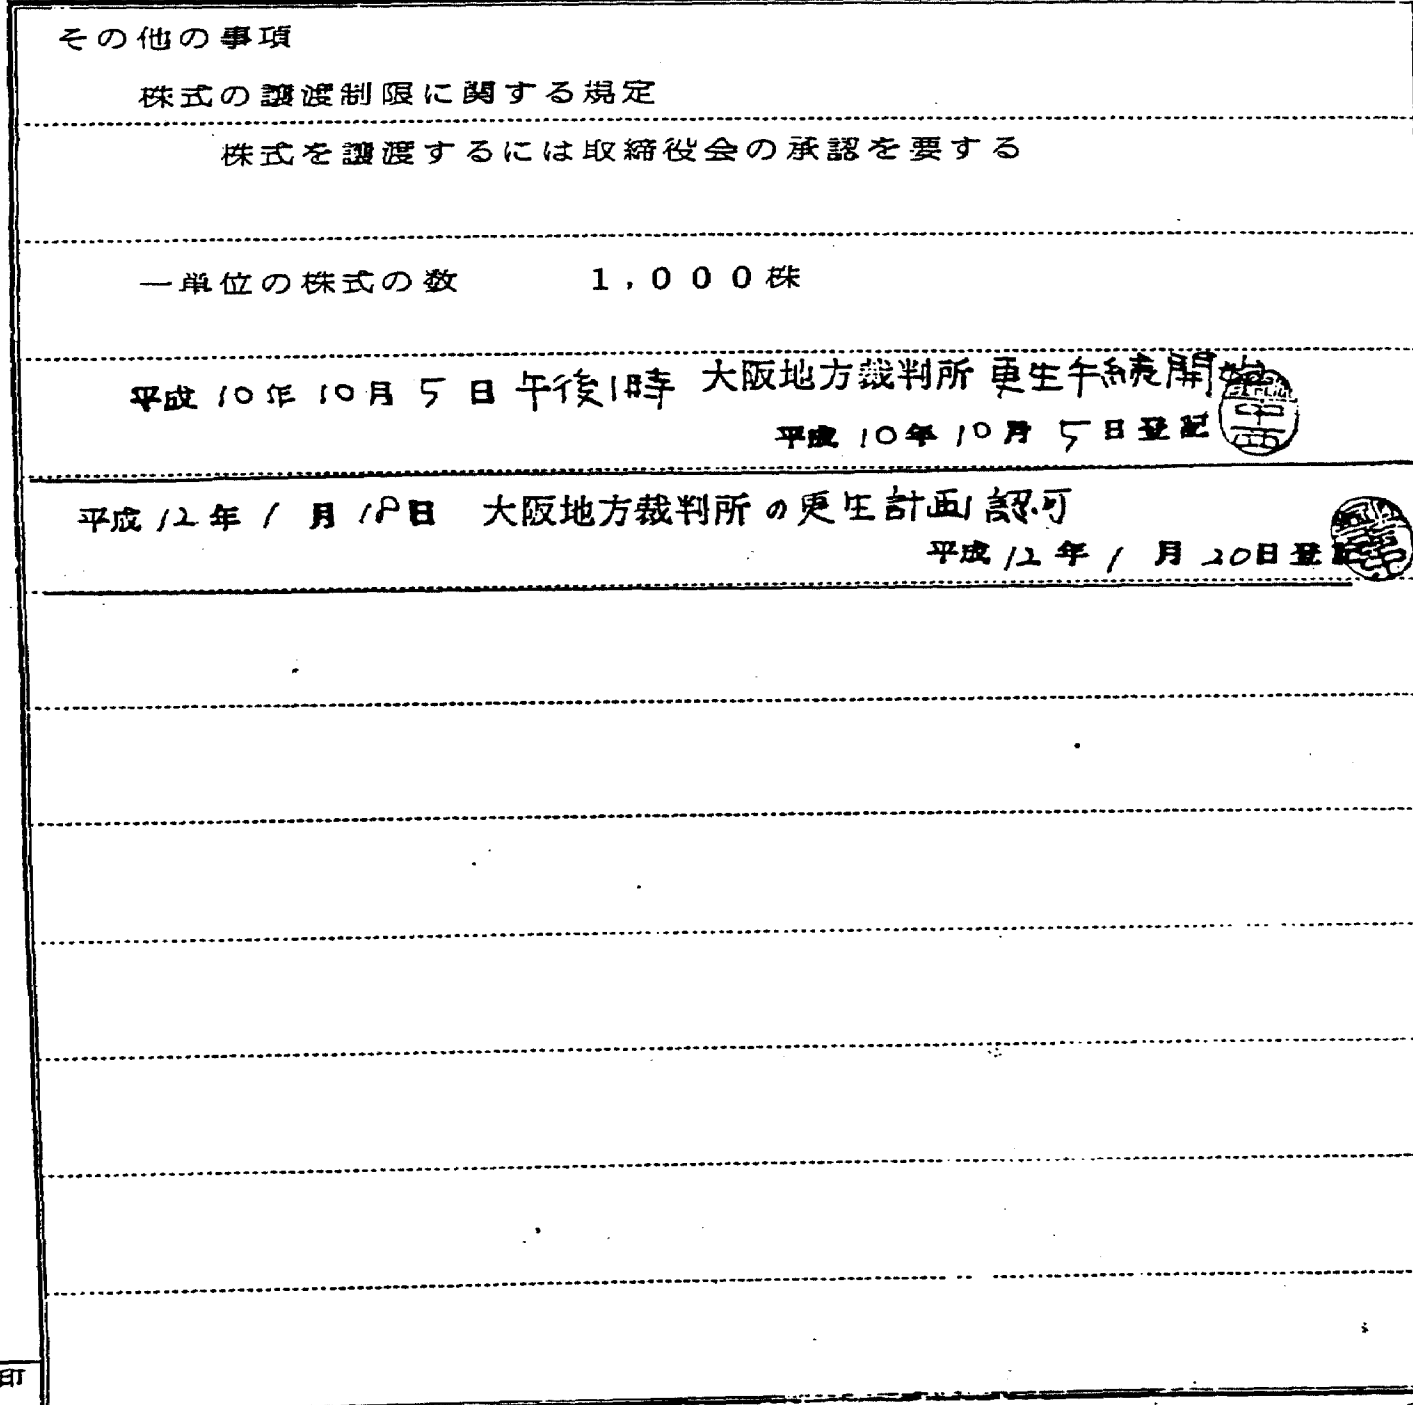 その他の事項
株式の譲渡制限に関する規定
株式を譲渡するには取締役会の承認を要する
一単位の株式の数 1,000株
平成10年10月5日午後1時 大阪地方裁判所更生手続開始
平成10年10月5日登記
平成12年1月18日 大阪地方裁判所の更生計画認可
平成12年1月20日登記
印